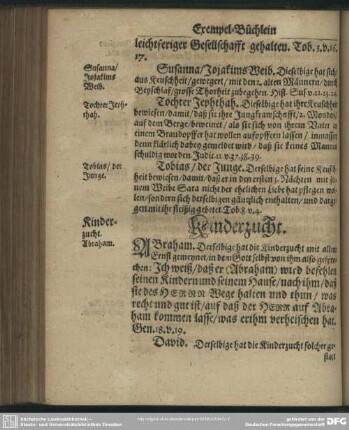 Exempel-Büchlein
leichtfertiger Gesellschafft gehalten. Tob. 3. v. 16.
17.
Susanna/
Jojakims
Weib.
Susanna/ Jojakims Weib. Dieselbige hat sich
aus Keuschheit/ gewegert/ mit den 2. alten Männern/ durch
Beyschlaf/ grosse Thorheit zubegehen. Hist. Sus. v. 22. 23.
Tochter Jeph-
thah.
Tochter Jephthah. Dieselbige hat ihre Keuschheit
bewiesen/ damit/ daß sie ihre Jungkrawschafft/ 2. Monden
auf dem Berge/ beweinet/ als sie sich von ihrem Vater
einem Brandopffer hat wollen aufopffern lassen/ immassen
denn klärlich dabey gemeldet wird/ daß sie keines Mannes
schuldig worden. Judic. 11. v. 37. 38. 39.
Tobias/ der
Junge.
Tobias/ der Junge. Derselbige hat seine Keusch
heit bewiesen/ damit/ daß er in den ersten 3. Nächten mit
nem Weibe Sara nicht der ehelichen Liebe hat pflegen wol
len/ sondern sich derselbigen gäntzlich enthalten/ und
gen mit ihr fleißig gebetet. Tob. 8. v. 4.
Kinder-
zucht.
Kinderzucht.
Abraham.
ABraham. Derselbige hat die Kinderzucht mit allem
Ernst gemeynet/ in dem Gott selbst von ihm also
chen: Ich weiß/ daß er (Abraham) wird befehlen
seinen Kindern und seinem Hause/ nach ihm/ daß
sie des HERRN Wege halten und thun/ was
recht und gut ist/ auf daß der HERR auf Abra-
ham kommen lasse/ was er ihm verheischen hat.
Gen. 18. v. 19.
David. Derselbige hat die Kinderzucht solcher ge-
stalt